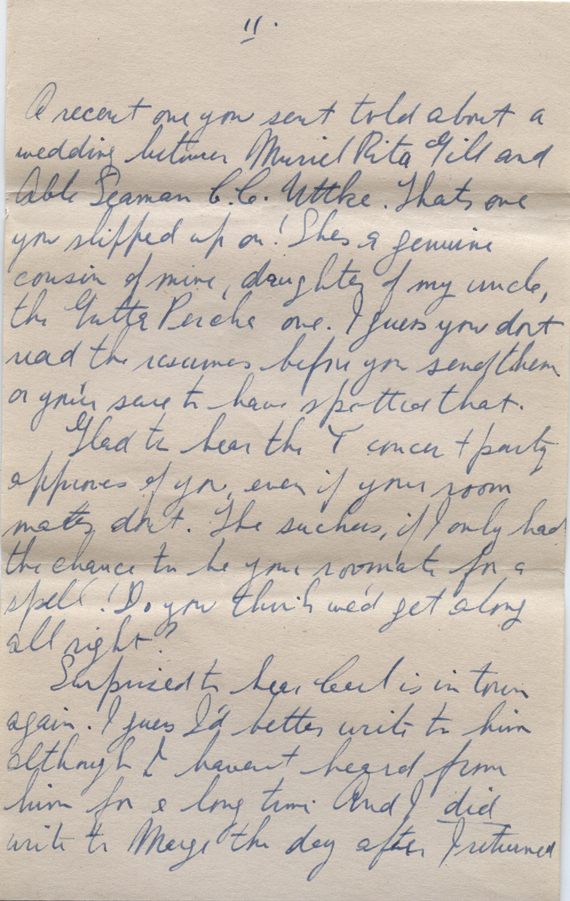 11.
A recent one you sent told about a
wedding between Muriel Rita Gill and
Able Seaman C.C. Uttke. Thats one
you slipped up on! Shes a genuine
cousin of mine, daughter of my uncle,
the Gutta Percha one. I guess you dont
read the resumes before you send them
or you're sure to have spotted that.
Glad to hear the Y concert party
approves of you, even if your room
mates dont. The suckers, if I only had
the chance to be your roomate for a
spell! Do you think we'd get along
all right?
Surprised to hear Cecil is in town
again. I guess I'd better write to him
although I havent heard from
him for a long time. And I did
write to Marge the day after I returned